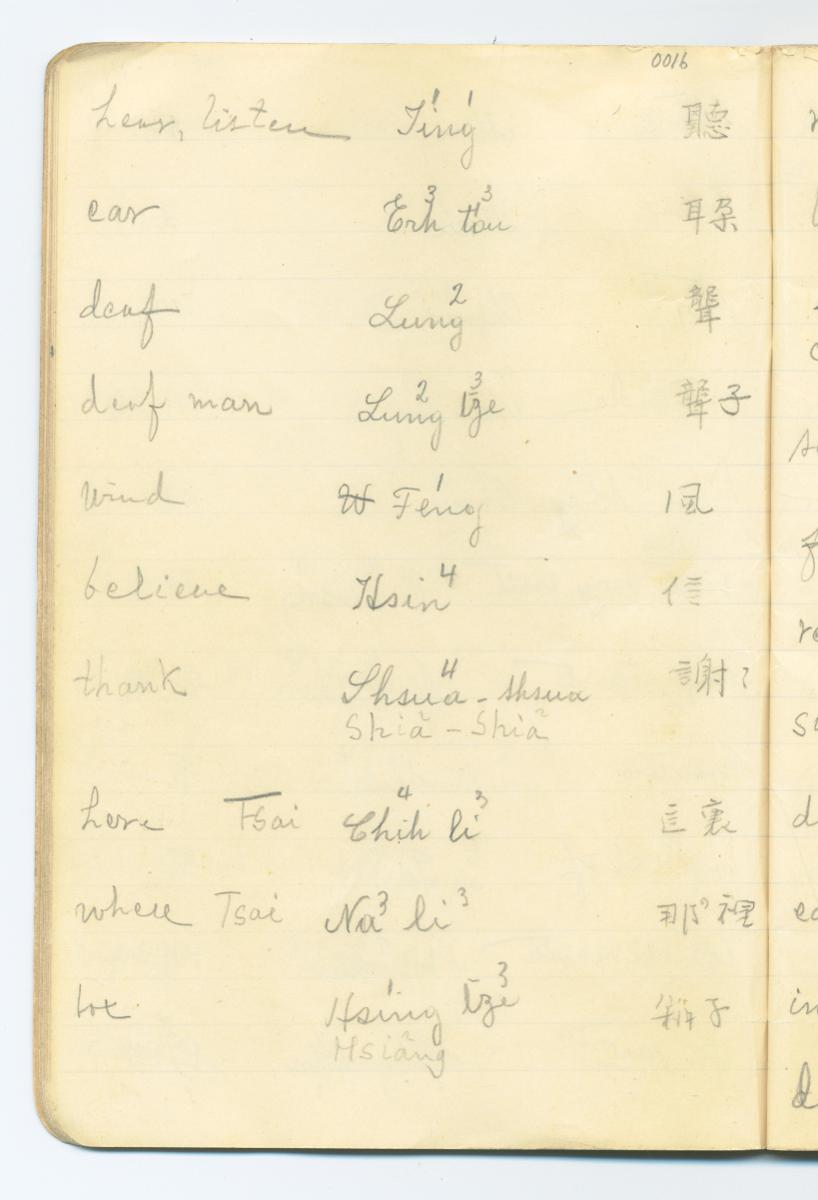 0016
hear, listen T'ing¹ 聽
ear Erh³ t'ou³ 耳朶
deaf Lung² 聾
deaf man Lung² tze³ 聾子
wind Feng¹ 風
believe Hsin⁴ 信
thank Shsua⁴ - shsua 謝
Shiă - Shiă
here Tsai Chih⁴ li³ 這裏
where Tsai Na³ li³ 那裡
box Hsing¹ tze³ 子
Hsiăng